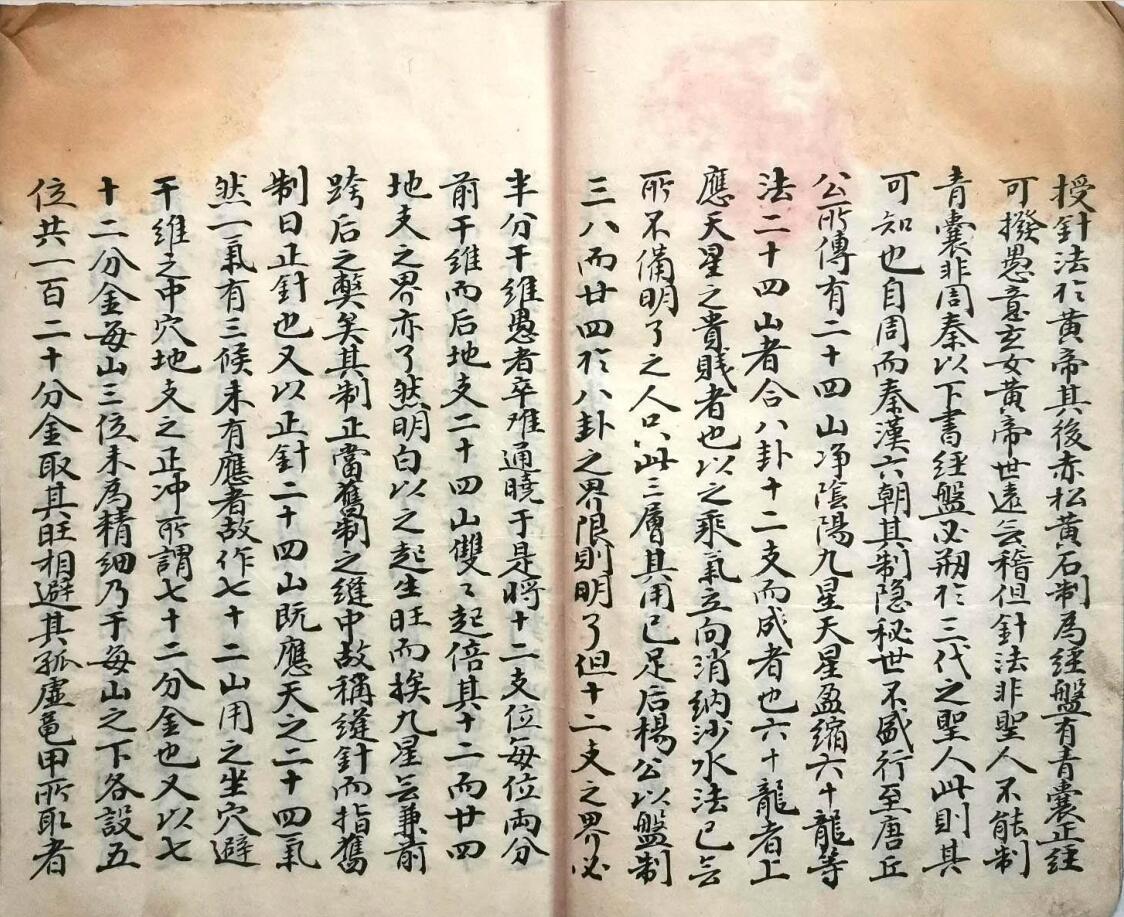 授針法於黃帝其後赤松黃石制為經盤有青囊正經
可撥愚意玄女黃帝世遠無稽但針法非聖人不能制
青囊非周秦以下書經盤必刱於三代之聖人此則其
可知也自周而秦漢六朝其制隐秘世不盛行至唐丘
公所傳有二十四山净陰陽九星天星盈縮六十龍等
法二十四山者合八卦十二支而成者也六十龍者上
應天星之貴賤者也以之乘氣立向消納沙水法已无
所不備明了之人只此三層其用已足后楊公以盤制
三八而廿四於八卦之界限則明了但十二支之界必
半分干維愚者卒难通曉于是將十二支位每位両分
前干維而后地支二十四山雙々起倍其十二而廿四
地支之界亦了然明白以之起生旺而挨九星无兼前
跨后之獘矣其制正當舊制之縫中故稱縫針而指舊
制曰正針也又以正針二十四山既應天之二十四氣
然一氣有三候未有應者故作七十二山用之坐穴避
干維之中穴地支之正冲所謂七十二分金也又以七
十二分金每山三位未為精細乃于每山之下各設五
位共一百二十分金取其旺相避其孤虛龟甲所取者